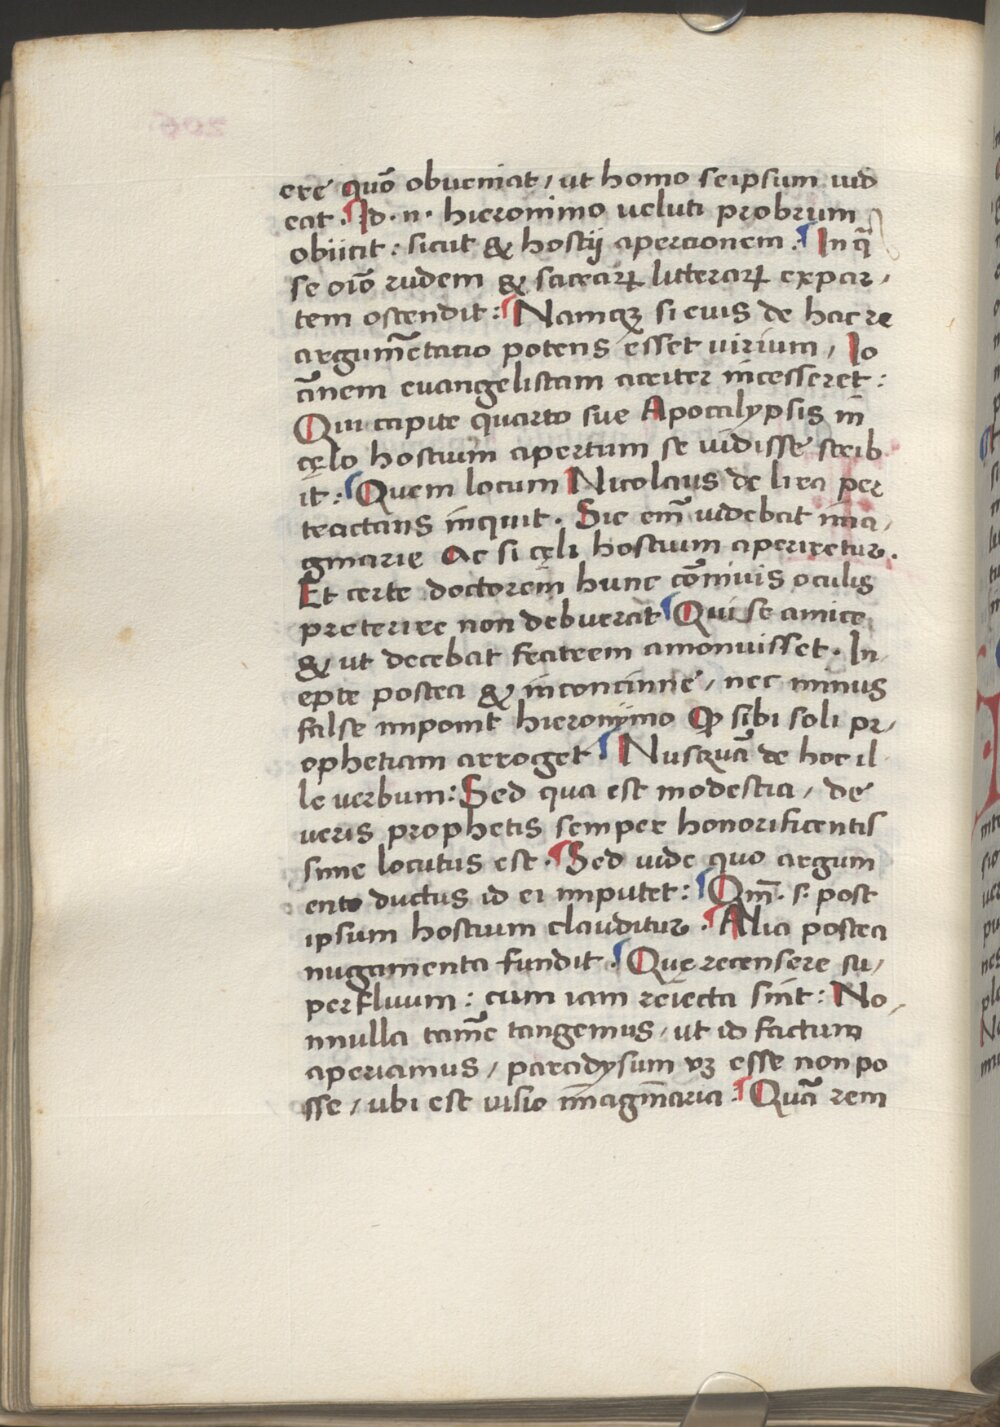 ere quō obueniat / ut homo seipsum uid
eat . Id . n . hieronimo ueluti probrum
obiicit : sicut & hostij apercionem : In q̄
se oīo rudem & sacrarꝝ litterarꝝ expar /
tem ostendit : Namqꝫ si euis de hac re
argum̄etatio potens esset virium / Io
ānem euangelistam acriter incesseret :
Qui capite quarto sue Apocalypsis in
cęlo hostium apertum se uidisse scrib
it : Quem locum Nicolaus de lira per
tractans inquit . Sic em̄ uidebat ima /
ginarie Ac si cęli hostium aperiretur .
Et certe doctorem hunc cōniuis oculis
preterire non debuerat Qui se amice
& ut decebat fratrem amonuisset . In
epte postea & inconcinne / nec minus
false imponit hieronymo ꝙ sibi soli pr /
ophetiam arroget Nusquā de hoc il
le uerbum : Sed qua est modestia / de
ueris prophetis semper honorificentis
sime locutus est . Sed uide quo argum
ento ductus id ei imputet : Qm̄ . s . post
ipsum hostium clauditur . Alia postea
nugamenta fundit . Quę recensere su /
perfluum : cum iam reiecta sint : No
nnulla tamē tangemus / ut id factum
aperiamus / paradysum vꝫ esse non po
sse / ubi est uisio imaginaria : Quā rem